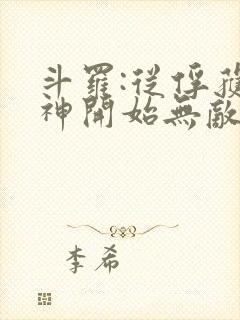 斗羅:從俘獲
神開始無敵
李希